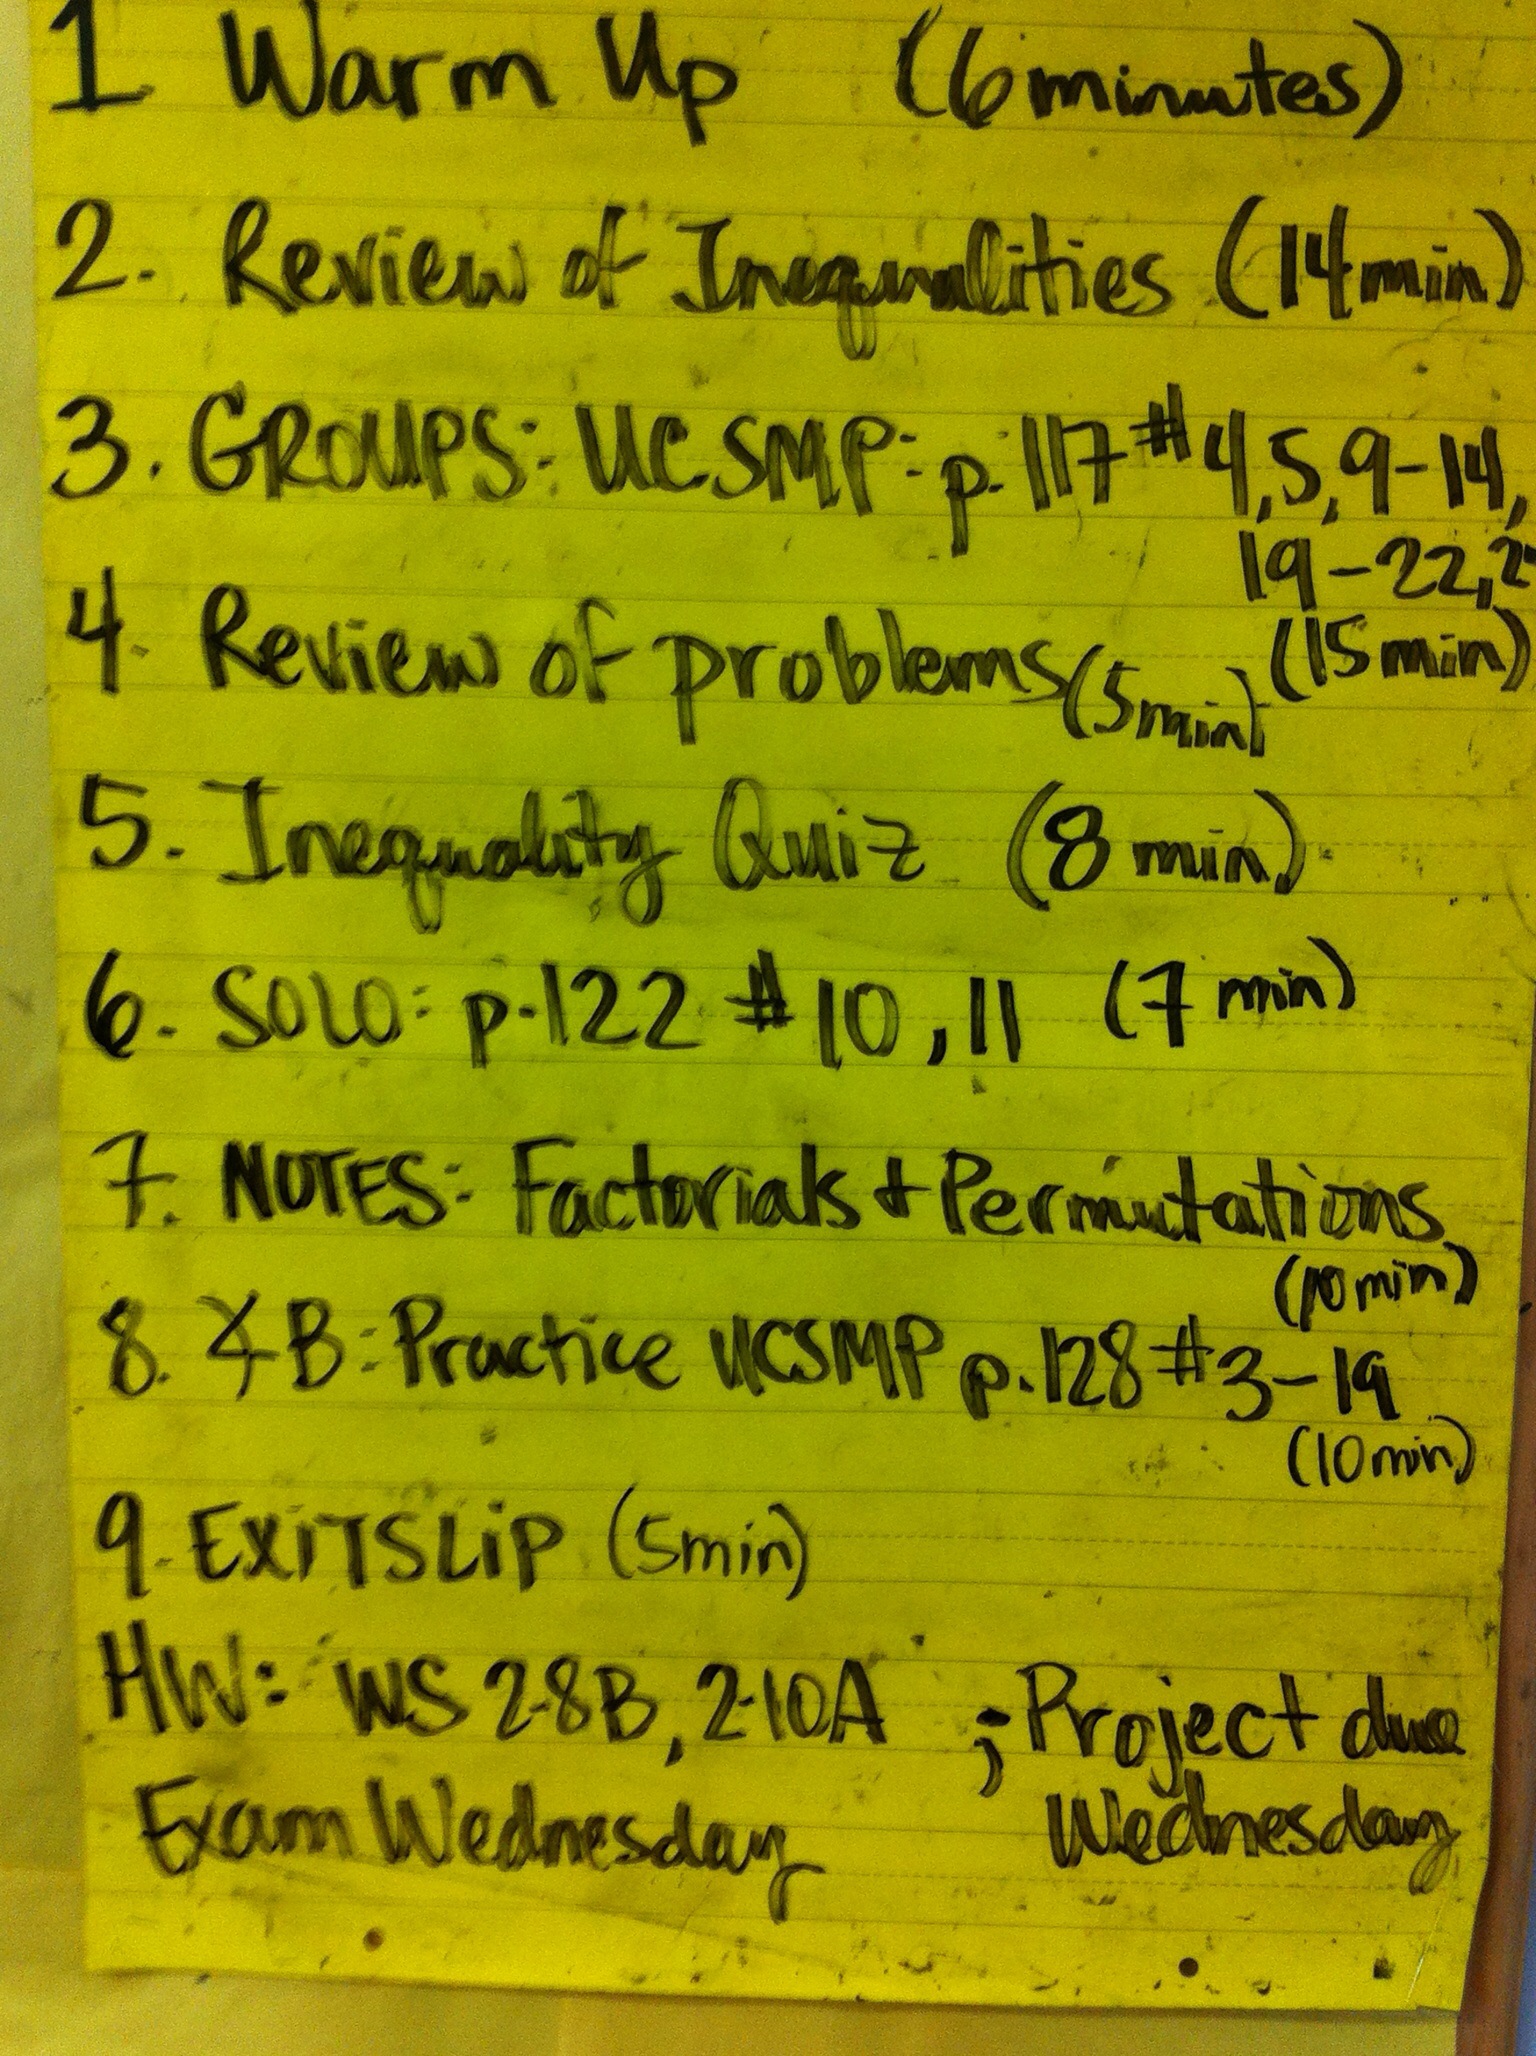 1 Warm Up (6 minutes)
2. Review of Inequalities (14 min)
3. GROUPS: UCSMP: p. 117 # 4, 5, 9-14,
19-22,
(15 min)
4. Review of problems (5 min)
5. Inequality Quiz (8 min)
6. SOLO: p. 122 # 10, 11 (7 min)
7. NOTES: Factorials + Permutations
(10 min)
8. B: Practice UCSMP p. 128 # 3-19
(10 min)
9. EXITSLIP (5 min)
HW: WS 2-8B, 2-10A ; Project due
Exam Wednesday Wednesday